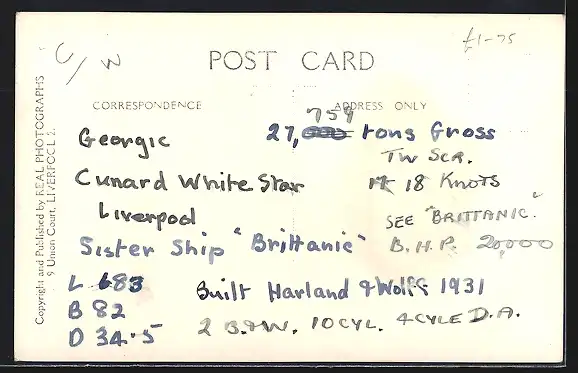 £1-75
C/W
POST CARD
CORRESPONDENCE
ADDRESS ONLY
Copyright and Published by REAL PHOTOGRAPHS
9 Union Court, LIVERPOOL 2.
759
Georgic 27, tons Gross
TW SCR.
Cunard White Star 18 Knots
Liverpool SEE "BRITTANIC."
Sister Ship "Brittanic" B.H.P. 20,000
L 683 Built Harland & Wolff 1931
B 82 2 B&W. 10CYL. 4CYLE D.A.
D 34.5